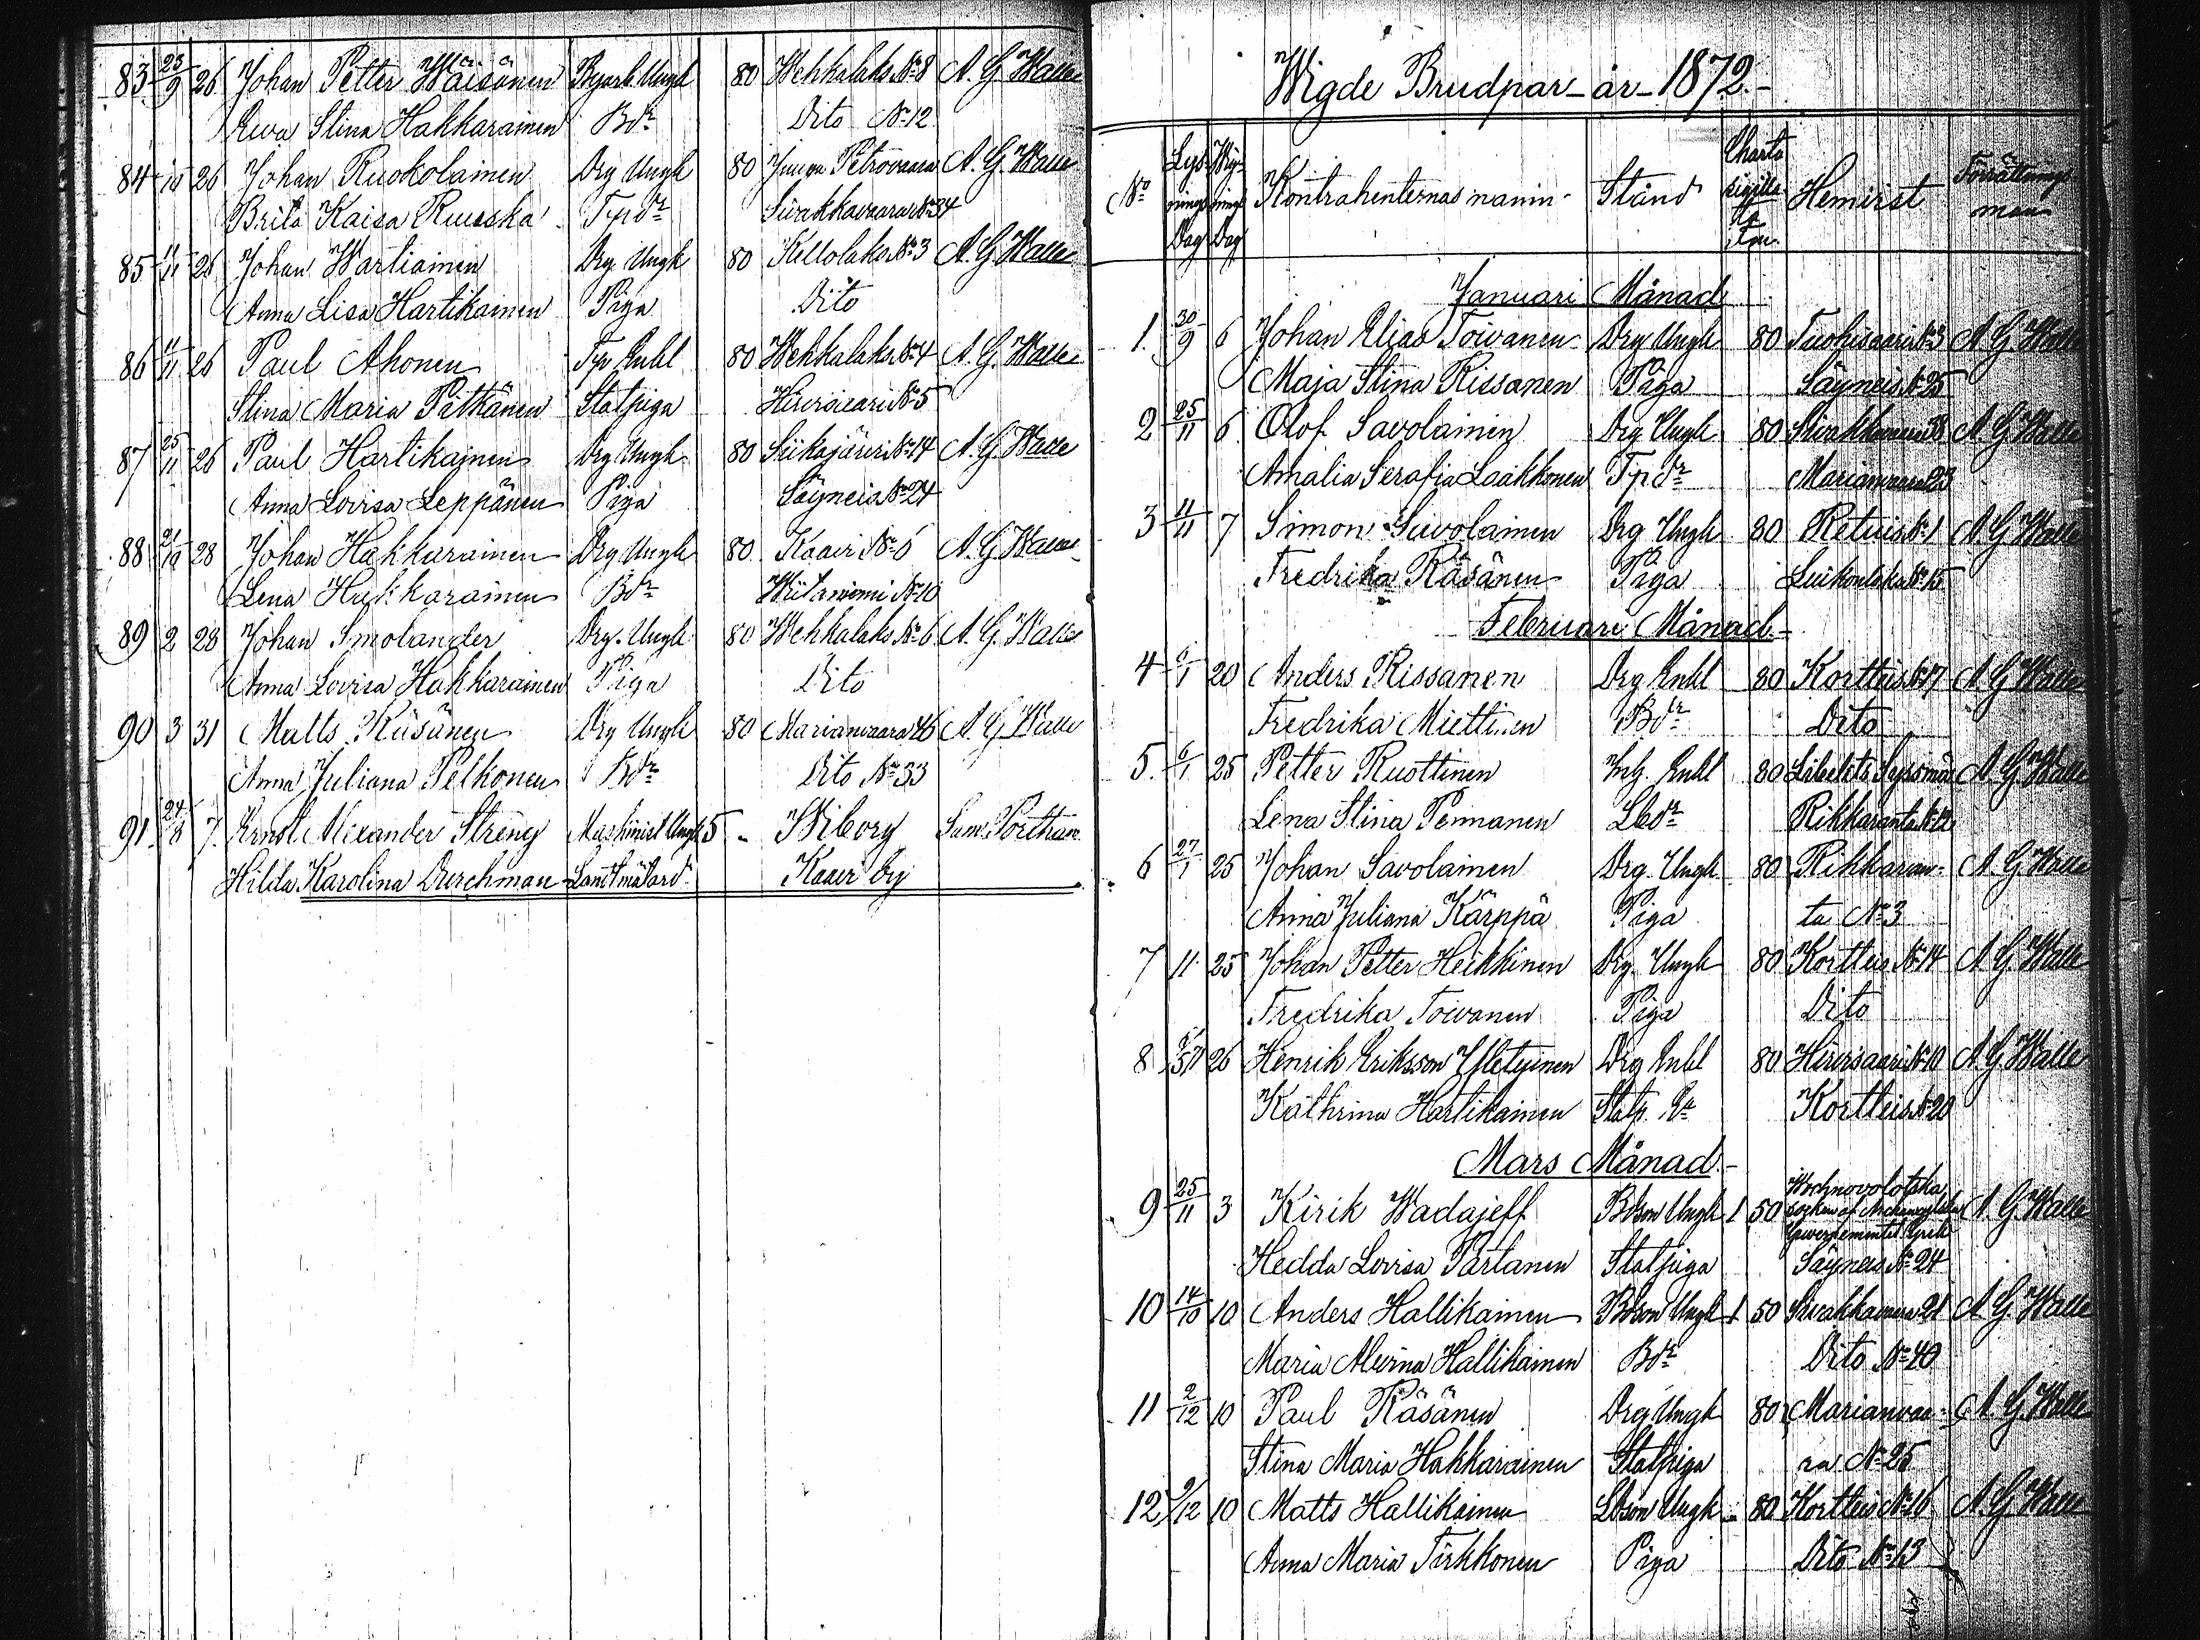 83 23/9 26 Johan Petter Wäisänen Bgarb. Ungk 80 Wehkalaks No 8 A. G. Walle
Ewa Stina Hakkarainen Bdr Dito No 12
84 26 Johan Ruokolainen Drg Ungk 80 Petrovaara A. G. Walle
Brita Kaisa Ruuska Tpdr Siwakkavaara No 34
85 11/11 26 Johan Wartiainen Drg Ungk 80 Kellolaks No 3 A. G. Walle
Anna Lisa Hartikainen Piga Dito
86 11/11 26 Paul Ahonen Tp Enkl 80 Wehkalaks No 4 A. G. Walle
Stina Maria Pitkänen Statpiga Hirvisaari No 5
87 25/11 26 Paul Hartikainen Drg Ungk 80 Siikajärvi No 14 A. G. Walle
Anna Lovisa Leppänen Piga Säyneis No 24
88 21/10 28 Johan Hakkarainen Drg Ungk 80 Kaavi No 6 A. G. Walle
Lena Hakkarainen Bdr Wiitaniemi No 10
89 2 28 Johan Smolander Drg. Ungk 80 Wehkalaks No 6 A. G. Walle
Anna Lovisa Hakkarainen Piga Dito
90 3 31 Matts Räsänen Drg Ungk 80 Marianvaara 46 A. G. Walle
Anna Juliana Pelkonen Bdr Dito No 33
91 24/8 7 Ernst Alexander Streng Maskinist Ungk 5 - Wiborg Sam. Porthan
Hilda Karolina Durchman Landtmätard. Kaavi by
Wigde Brudpar år 1872.
No Lysnings Dag Wignings Dag Kontrahenternas namn Stånd Charta sigillata Hemvist Förrättningsman
Januari Månad
1. 30/9 6 Johan Elias Toivanen Drg Ungk 80 Tuohisaari No 3 A. G. Walle
Maja Stina Rissanen Piga Säyneis No 25
2 25/11 6 Olof Savolainen Drg Ungk 80 Siwakkavaara 38 A. G. Walle
Amalia Serafia Laakkonen Tpdr Marianvaara 23
3 11/11 7 Simon Savolainen Drg Ungk 80 Retuis No 1 A. G. Walle
Fredrika Räsänen Piga Luikonlaks No 15
Februari Månad
4 6/1 20 Anders Rissanen Drg Enkl 80 Kortteis No 17 A. G. Walle
Fredrika Mietti..en Bdr Dito
5. 6/1 25 Petter Ruottinen Inh. Enkl 80 Libelits Sysmä A. G. Walle
Lena Stina Pennanen Lbdr Rikkaranta No 12
6 27/1 25 Johan Savolainen Drg. Ungk 80 Rikkaran- A. G. Walle
Anna Juliana Kärppä Piga ta No 3
7 11 25 Johan Petter Heikkinen Drg. Ungk 80 Kortteis No 14 A. G. Walle
Fredrika Toivanen Piga Dito
8 26 Henrik Eriksson Drg Enkl 80 Hirvisaari No 10 A. G. Walle
Kathrina Hartikainen Statp. Kortteis No 20
Mars Månad
9 25/11 3 Kirik Wadajeff Bdson Ungk 1 50 socken af Archangelska Guvernementet A. G. Walle
Hedda Lovisa Partanen Statpiga Säyneis No 24
10 14/10 10 Anders Hallikainen Bdson Ungk 1 50 Siwakkavaara 21 A. G. Walle
Maria Alvina Hallikainen Bdr Dito No 40
11 2/12 10 Paul Räsänen Drg Ungk 80 Marianvaa- A. G. Walle
Stina Maria Hakkarainen Statpiga ra No 25
12 9/12 10 Matts Hallikainen Lbson Ungk - 80 Kortteis No 16 A. G. Walle
Anna Maria Tirkkonen Piga Dito No 13